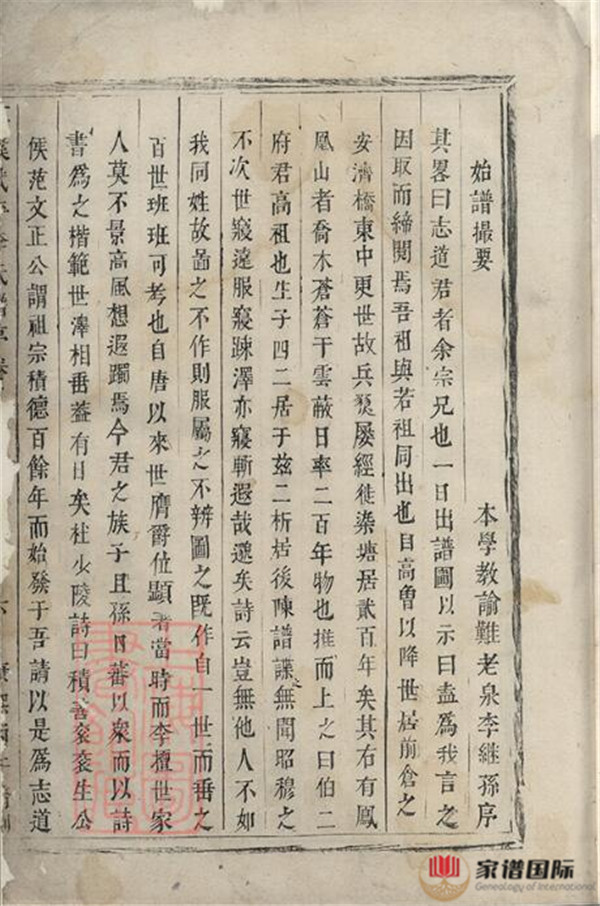 始譜撮要
本學教諭難老泉李繼孫序
其畧曰志道君者余宗兄也一日出譜圖以示曰盍為我言之
因取而締閱焉吾祖與若祖同出也自高魯以降世居前倉之
安濟橋東中更世故兵燹屡經徙染塘居貳百年矣其右有鳳
凰山者喬木蒼蒼干雲蔽日率二百年物也推而上之曰伯二
府君高祖也生子四二居于茲二析居後陳譜諜無聞昭穆之
不次世寖遠服寖踈澤亦寖斬遐哉邈矣詩云豈無他人不如
我同姓故啚之不作則服屬之不辨圖之既作自一世而垂之
百世班班可考也自唐以來世膺爵位顯者當時而李擅世家
人莫不景高風想遐躅焉今君之族子且孫日蕃以衆而以詩
書為之楷範世澤相垂葢有日矣杜少陵詩曰積善衮衮生公
侯范文正公謂祖宗積德百餘年而始發于吾請以是為志道
家谱国际
Genealogy of International